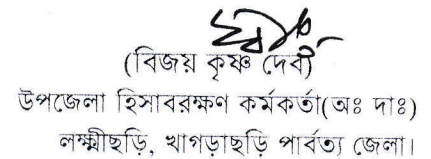 (বিজয় কৃষ্ণ দেব)
উপজেলা হিসাবরক্ষণ কর্মকর্তা(অঃ দাঃ)
লক্ষ্মীছড়ি, খাগড়াছড়ি পার্বত্য জেলা।